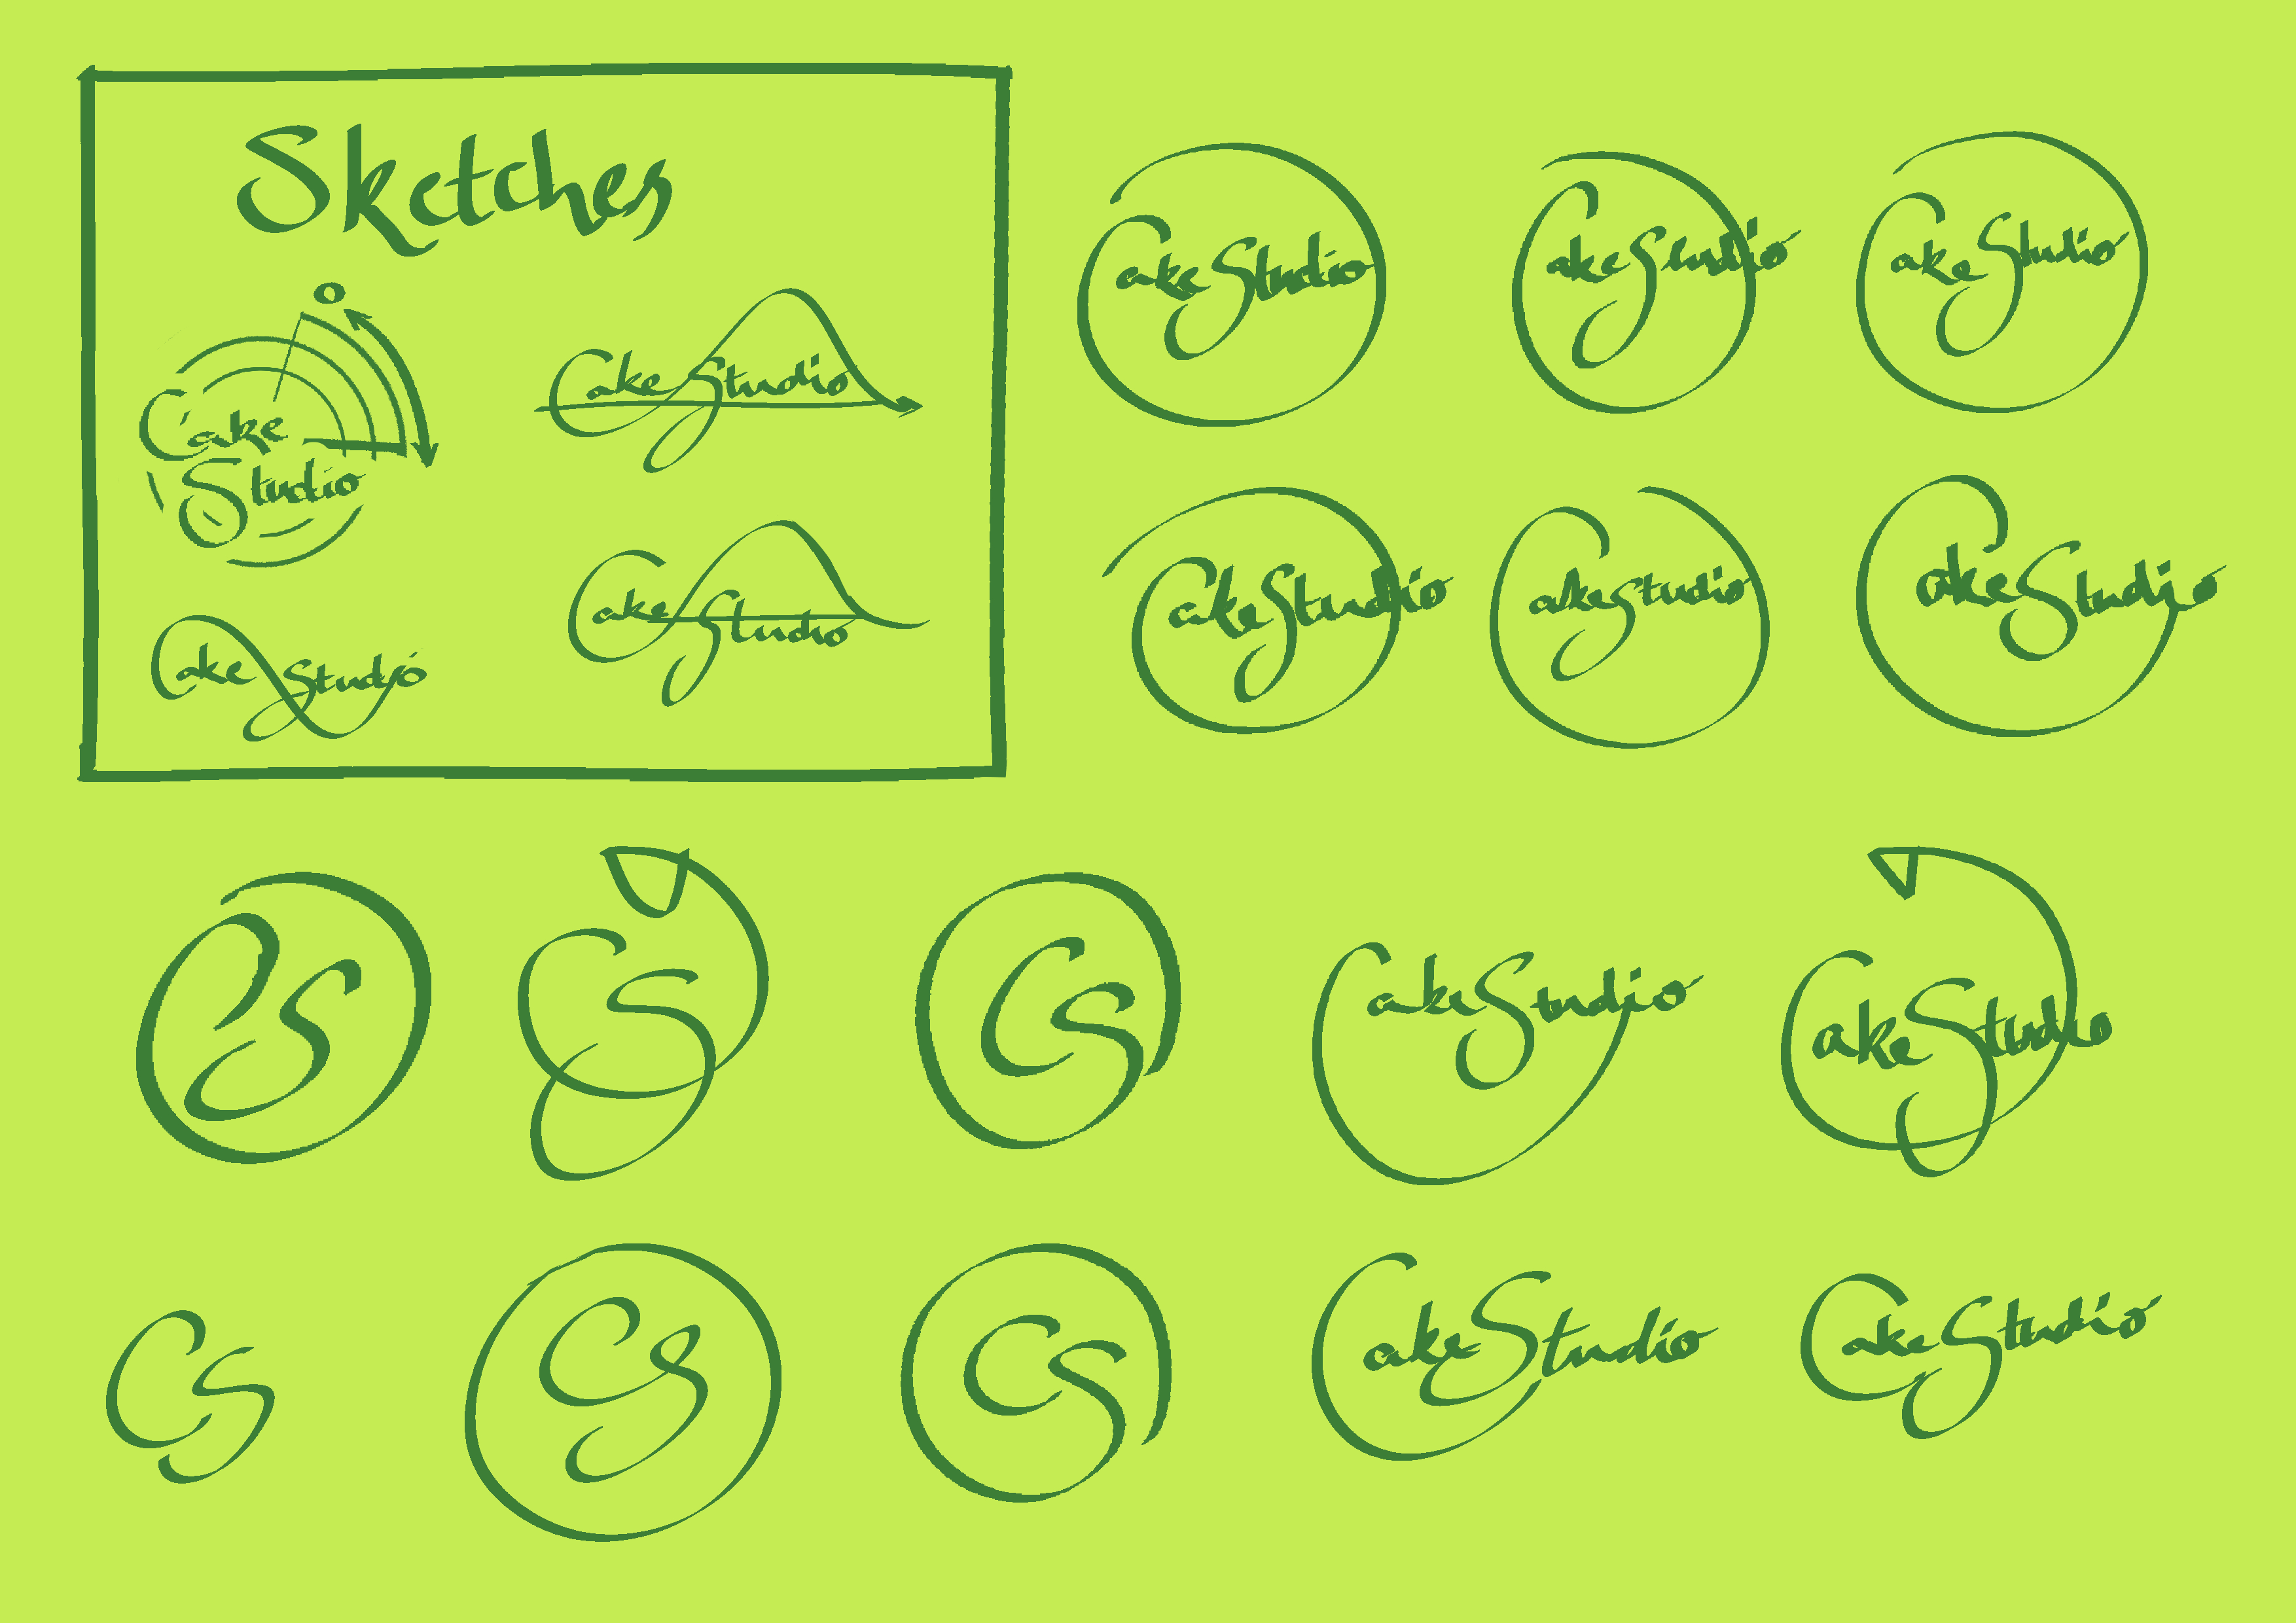 Sketches
Cake
Studio
Cake Studio
Cake Studio
Cake Studio
Cake Studio
Cake Studio
Cake Studio
Cake Studio
Cake Studio
Cake Studio
CS
CS
CS
Cake Studio
Cake Studio
CS
CS
CS
Cake Studio
Cake Studio